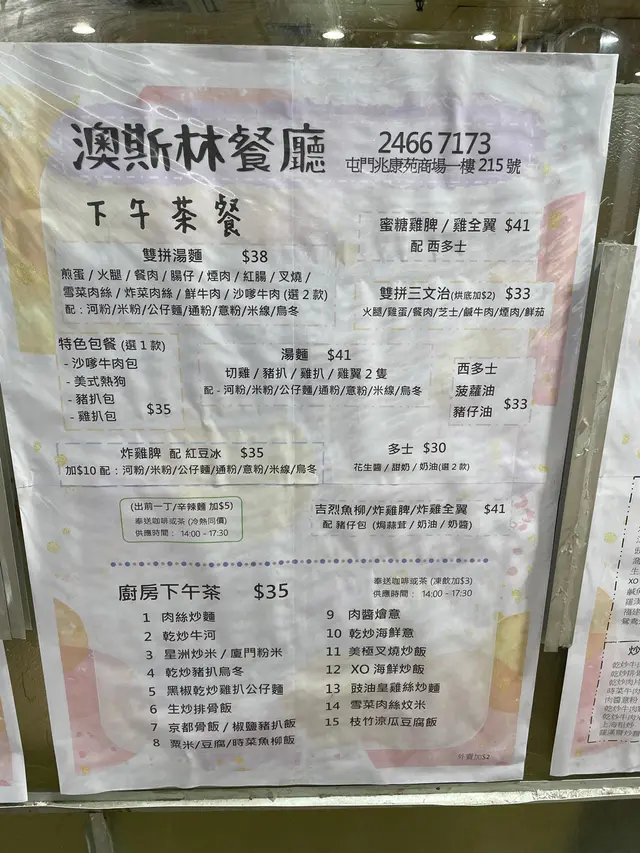 澳斯林餐廳
2466 7173
屯門兆康苑商場一樓 215 號
下午茶餐
蜜糖雞脾 / 雞全翼 $41
配 西多士
雙拼湯麵 $38
煎蛋 / 火腿 / 餐肉 / 腸仔 / 煙肉 / 紅腸 / 叉燒 /
雪菜肉絲 / 炸菜肉絲 / 鮮牛肉 / 沙嗲牛肉 (選 2 款)
配 : 河粉/米粉/公仔麵/通粉/意粉/米線/烏冬
雙拼三文治(烘底加$2) $33
火腿/雞蛋/餐肉/芝士/鹹牛肉/煙肉/鮮茄
特色包餐 (選 1 款)
- 沙嗲牛肉包
- 美式熱狗
- 豬扒包
- 雞扒包
$35
湯麵 $41
切雞 / 豬扒 / 雞扒 / 雞翼 2 隻
配 - 河粉/米粉/公仔麵/通粉/意粉/米線/烏冬
西多士
菠蘿油
豬仔油
$33
炸雞脾 配 紅豆冰 $35
加$10 配 : 河粉/米粉/公仔麵/通粉/意粉/米線/烏冬
多士 $30
花生醬 / 甜奶 / 奶油 (選 2 款)
(出前一丁/辛辣麵 加$5)
奉送咖啡或茶 (冷熱同價)
供應時間 : 14:00 - 17:30
吉烈魚柳/炸雞脾/炸雞全翼 $41
配 豬仔包 (焗蒜茸 / 奶油 / 奶醬)
廚房下午茶 $35
奉送咖啡或茶 (凍飲加$3)
供應時間 : 14:00 - 17:30
1 肉絲炒麵
2 乾炒牛河
3 星洲炒米 / 廈門粉米
4 乾炒豬扒烏冬
5 黑椒乾炒雞扒公仔麵
6 生炒排骨飯
7 京都骨飯 / 椒鹽豬扒飯
8 粟米/豆腐/時菜魚柳飯
9 肉醬燴意
10 乾炒海鮮意
11 美極叉燒炒飯
12 XO 海鮮炒飯
13 豉油皇雞絲炒麵
14 雪菜肉絲炆米
15 枝竹涼瓜豆腐飯
外賣加$2